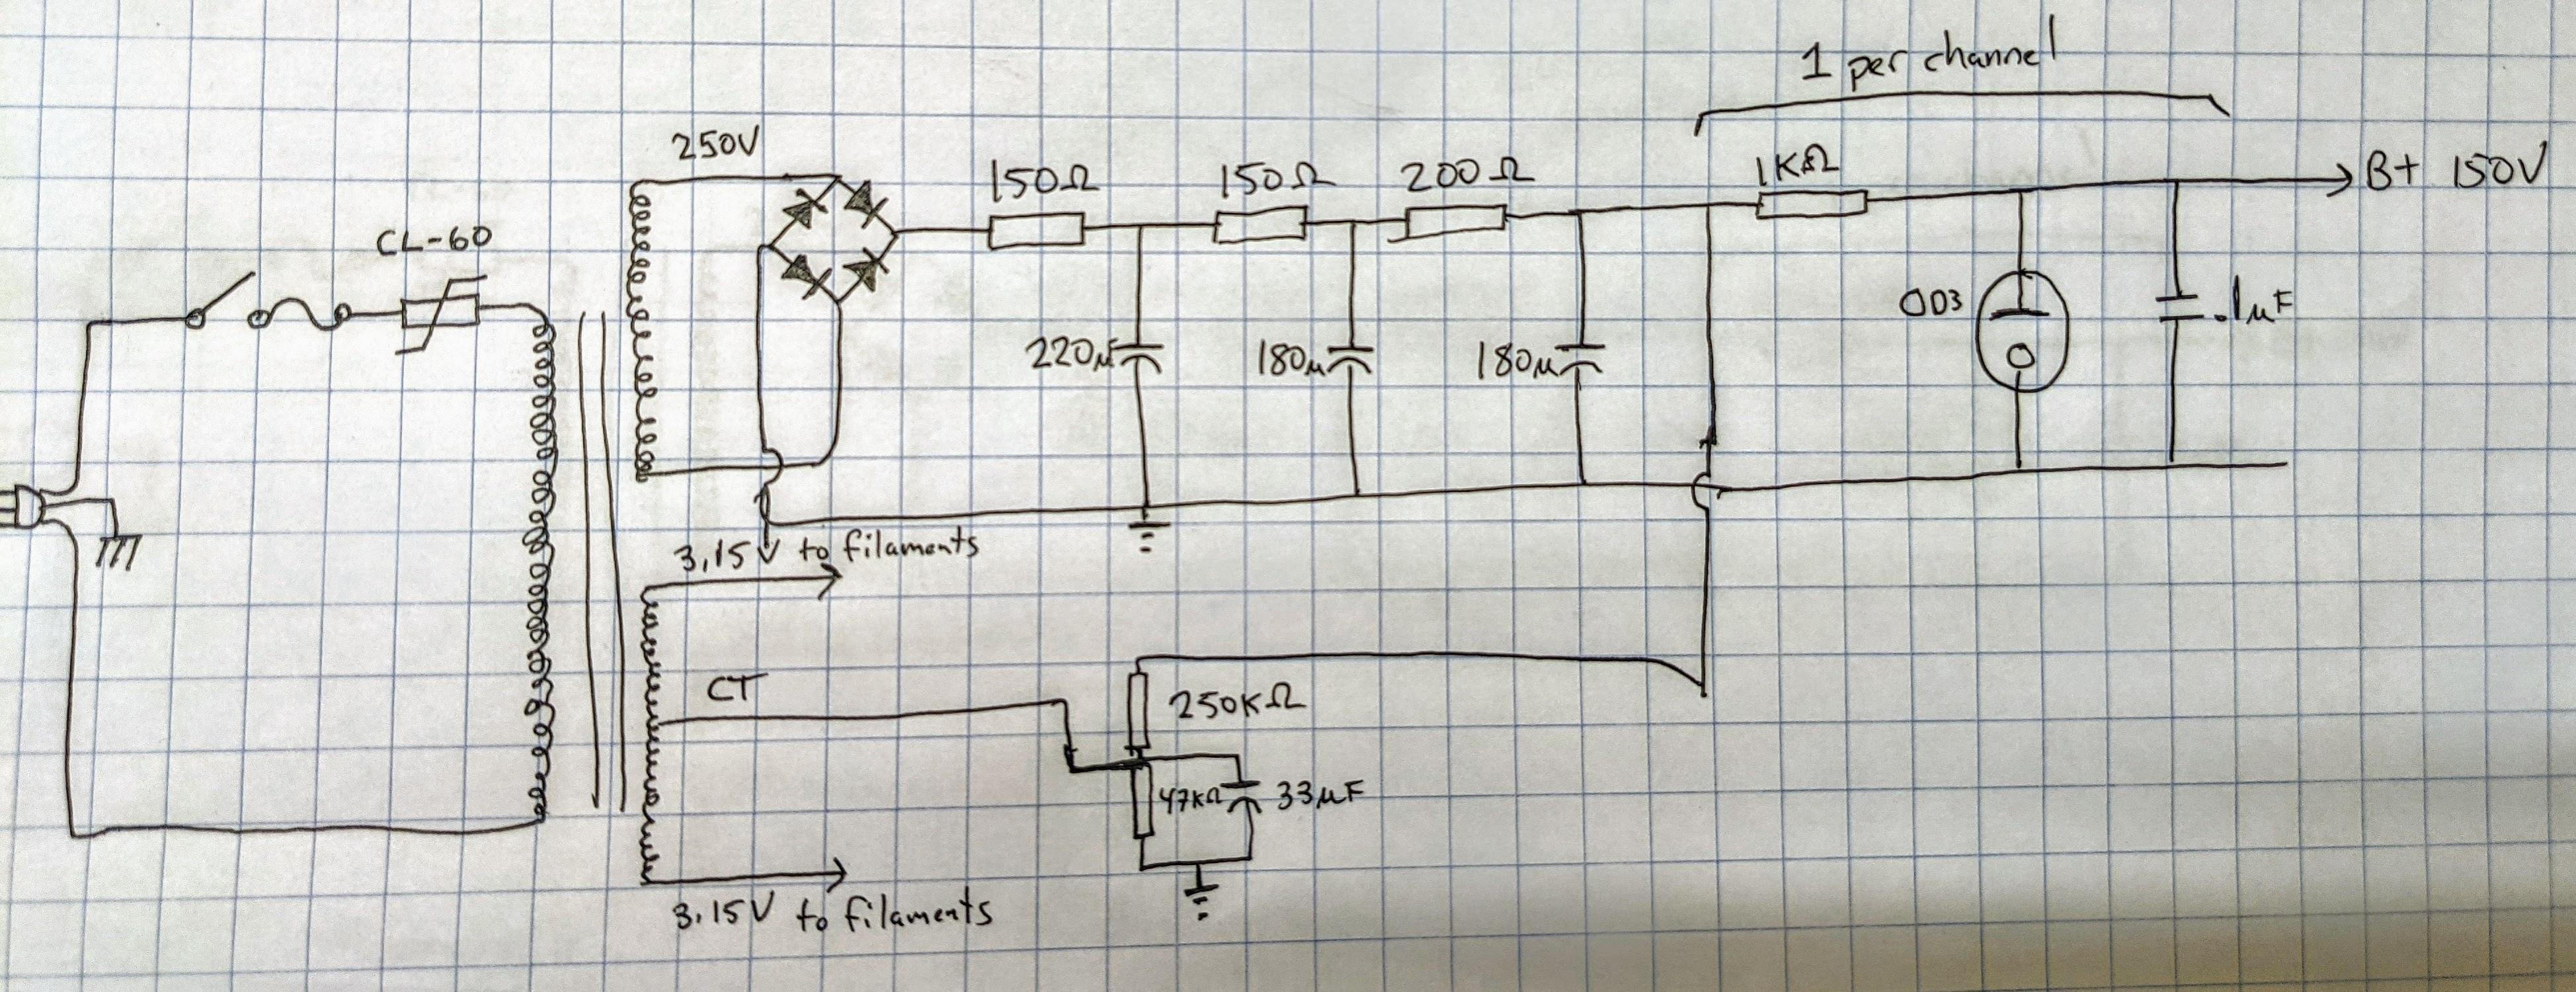 1 per channel
250V
CL-60
150Ω
150Ω
200Ω
1KΩ
B+ 150V
220µF
180µ
180µ
OD3
.1µF
3.15V to filaments
CT
250KΩ
47KΩ
33µF
3.15V to filaments